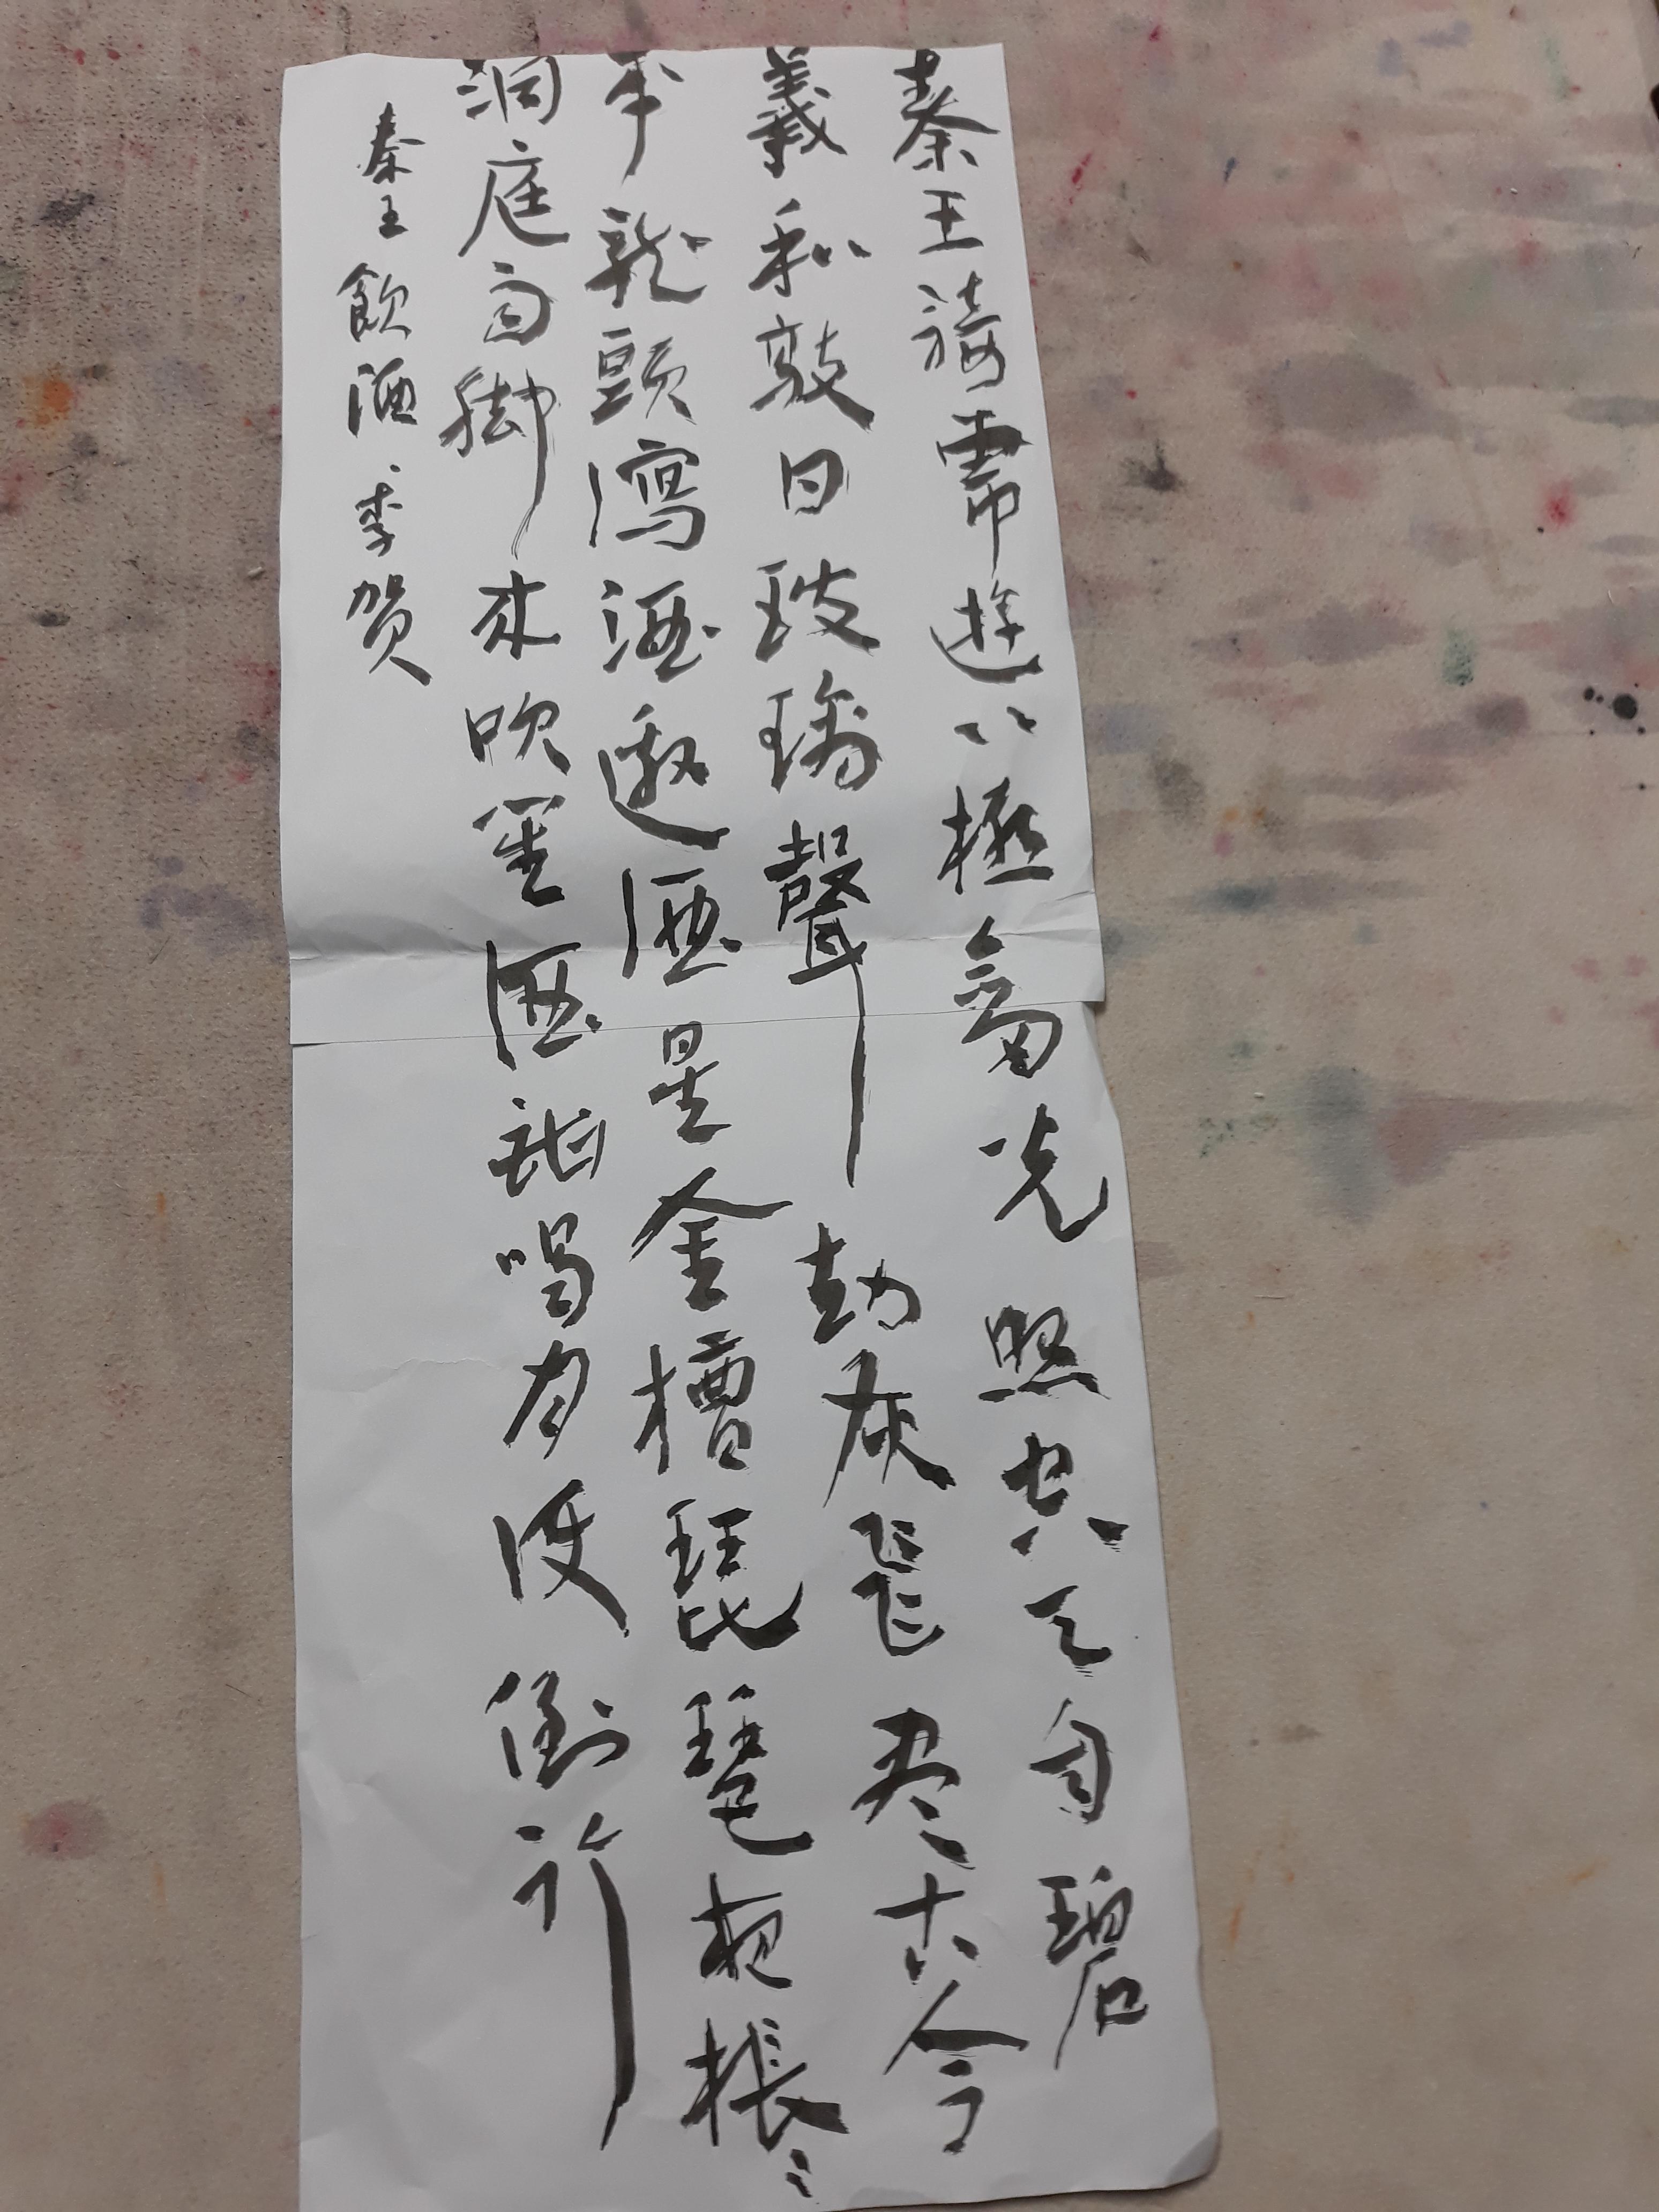 秦王騎虎遊八極劍光照空天自碧
羲和敲日玻璃聲劫灰飛盡古今
平龍頭瀉酒邀酒星金槽琵琶夜棖〻
洞庭雨脚来吹笙酒酣喝月使倒行
秦王飲酒李贺